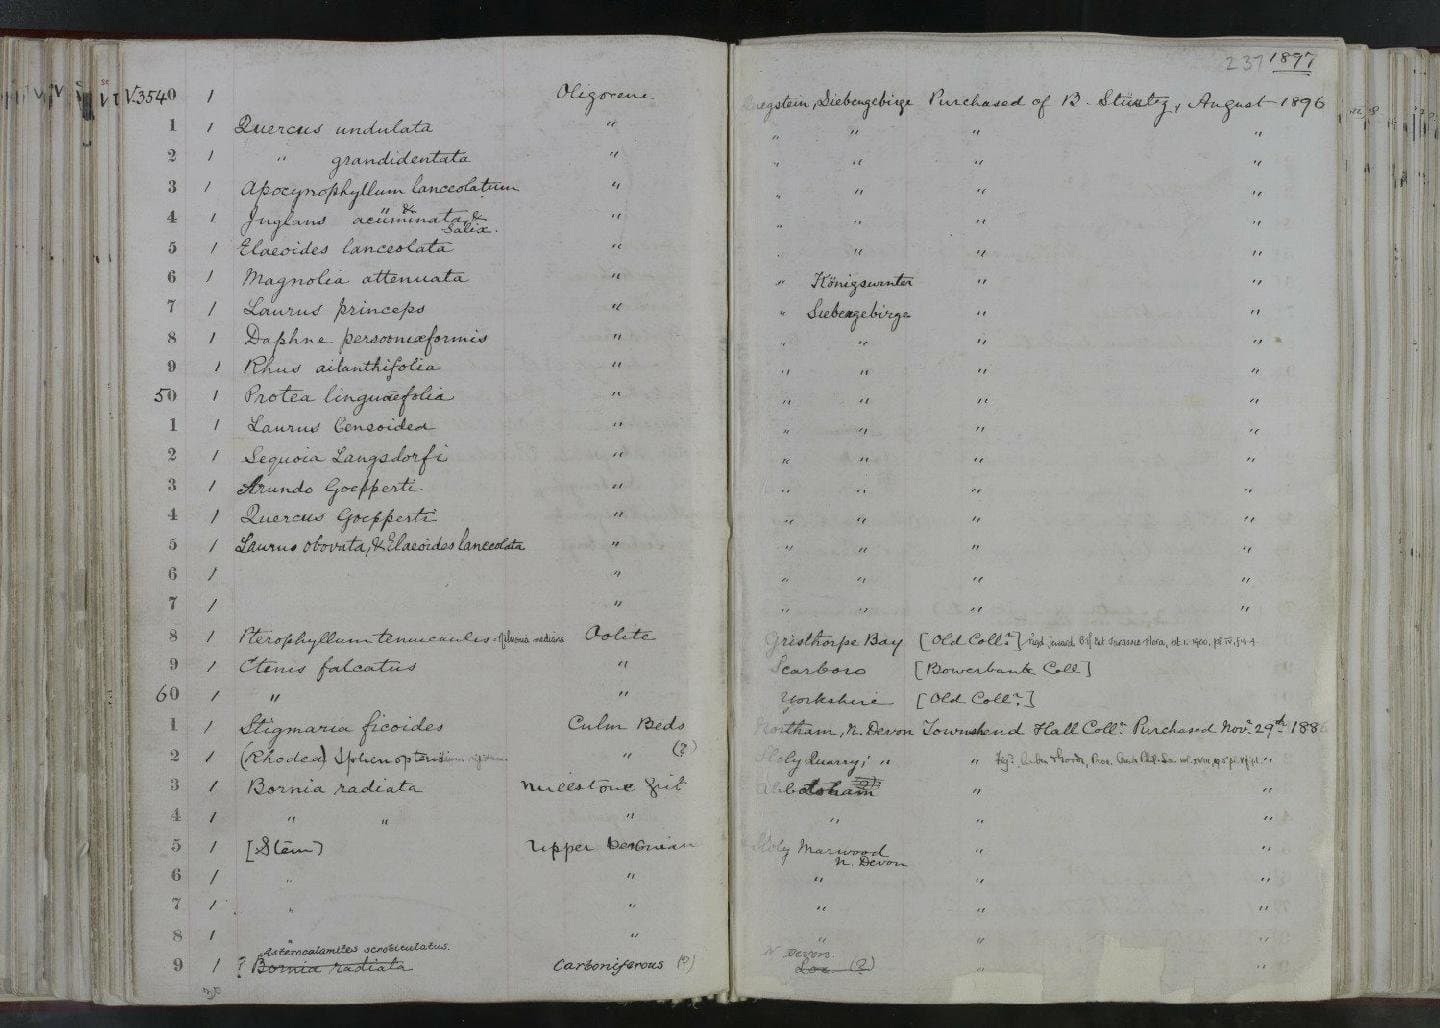 237 1897
V.3540 1 Oligocene. Siebengebirge Purchased of B. Stürtz, August 1896
1 1 Quercus undulata " " " " "
2 1 " grandidentata " " " " "
3 1 Apocynophyllum lanceolatum " " " " "
4 1 Juglans acuminata, & Salix. " " " " "
5 1 Elaeoides lanceolata " " " " "
6 1 Magnolia attenuata " " Königswinter " "
7 1 Laurus princeps " " Siebengebirge " "
8 1 Daphne persooniæformis " " " " "
9 1 Rhus ailanthifolia " " " " "
50 1 Protea linguæfolia " " " " "
1 1 Laurus benzoidea " " " " "
2 1 Sequoia Langsdorfi " " " " "
3 1 Arundo Goepperti. " " " " "
4 1 Quercus Goepperti " " " " "
5 1 Laurus obovata, & Elaeoides lanceolata " " " " "
6 1 " " " " "
7 1 " " " " "
8 1 Pterophyllum tenuicaulis = Oolite Gristhorpe Bay [Old Colln.]
9 1 Ctenis falcatus " Scarboro [Bowerbank Coll]
60 1 " " Yorkshire [Old Colln.]
1 1 Stigmaria ficoides Culm Beds Northam, N. Devon Townshend Hall Colln. Purchased Nov. 29th
2 1 (Rhodea) Sphenopteridium " (?) Quarry; " " "
3 1 Bornia radiata Millstone Grit Abbotsham (?) " "
4 1 " " " " " "
5 1 [Stem] Upper Devonian Marwood N. Devon " "
6 1 " " " " "
7 1 " " " " "
8 1 " " " " "
Asterocalamites scrobiculatus.
9 1 ? Bornia radiata Carboniferous (?) N Devon. Loc (?) " "